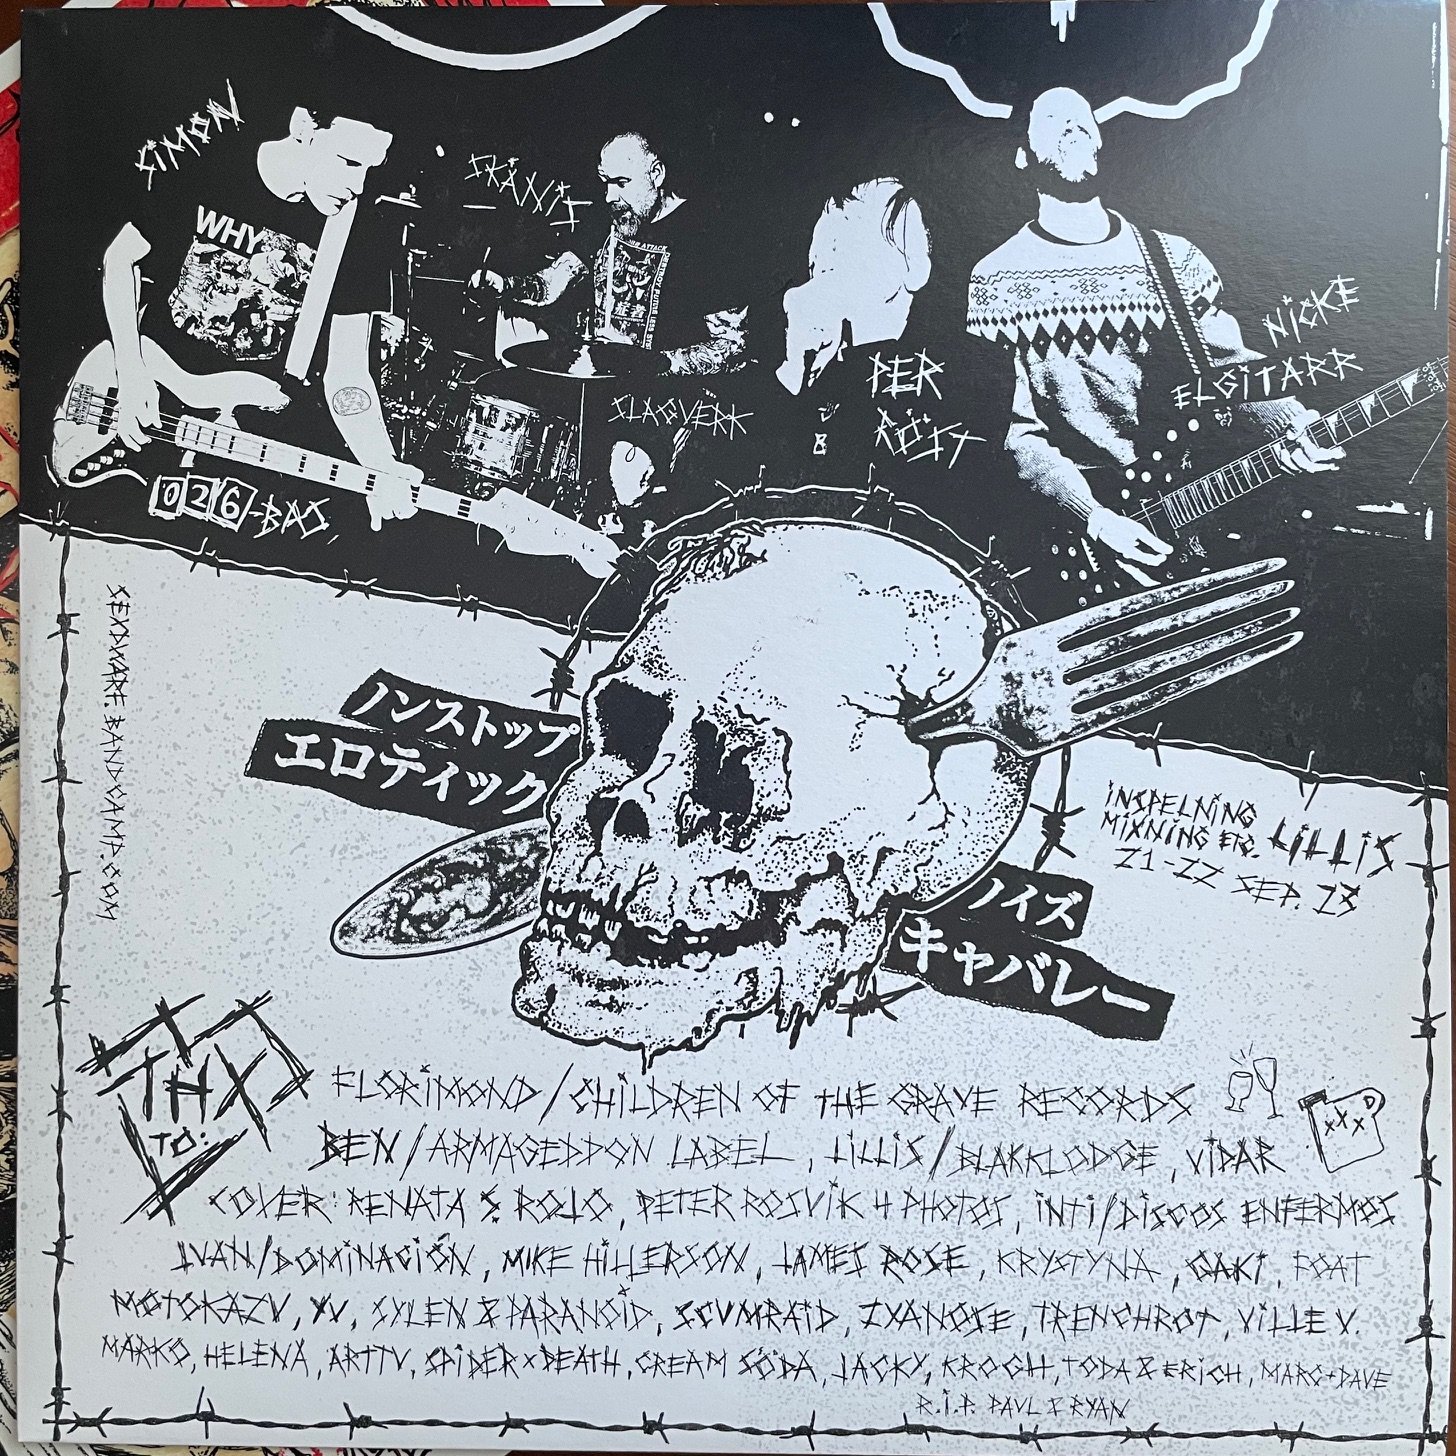 SIMON
WHY
SKÅNIS
SLAGVERK
PER
RÖST
NICKE
ELGITARR
026-BAS
SEXDWARF.BANDCAMP.COM
ノンストップ
エロティック
ノイズ
キャバレー
INSPELNING
MIXNING ETC. LILLIS
21-22 SEP. 23
THX
TO:
FLORIMOND/CHILDREN OF THE GRAVE RECORDS
BEN/ARMAGEDDON LABEL, LILLIS/BLAKKLODGE, VIDAR
XXX
COVER: RENATA & ROJO, PETER ROSVIK 4 PHOTOS, INTI/DISCOS ENFERMOS
IVAN/DOMINACIÓN, MIKE HILLERSON, JAMES ROSE, KRYSTYNA, GAKI, FOAT
MOTOKAZU, YU, SYLEN & PARANOID, SCUMRAID, ZYANOSE, TRENCHROT, VILLE V.
MARKO, HELENA, ARTTU, SPIDER X DEATH, CREAM SODA, JACKY, KROGH, TODA & ERICH, MARC+DAVE
R.I.P. PAUL & RYAN